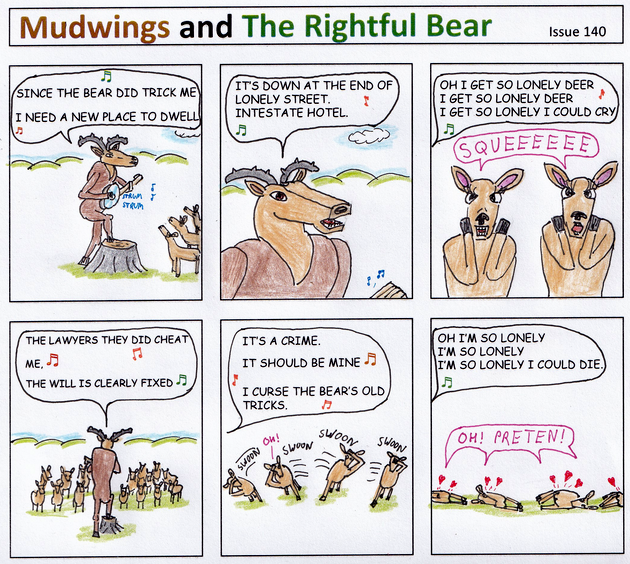 Mudwings and The Rightful Bear
Issue 140
SINCE THE BEAR DID TRICK ME
I NEED A NEW PLACE TO DWELL
STRUM
STRUM
IT'S DOWN AT THE END OF
LONELY STREET.
INTESTATE HOTEL.
OH I GET SO LONELY DEER
I GET SO LONELY DEER
I GET SO LONELY I COULD CRY
SQUEEEEEEE
THE LAWYERS THEY DID CHEAT
ME,
THE WILL IS CLEARLY FIXED
IT'S A CRIME.
IT SHOULD BE MINE
I CURSE THE BEAR'S OLD
TRICKS.
SWOON
OH!
SWOON
SWOON
SWOON
OH I'M SO LONELY
I'M SO LONELY
I'M SO LONELY I COULD DIE.
OH! PRETEN!